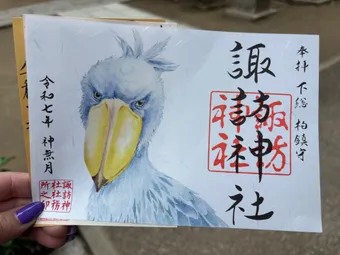 奉拝 下総 柏鎮守
諏訪神社
諏訪
神社
令和七年 神無月
諏訪神
社社務
所之印